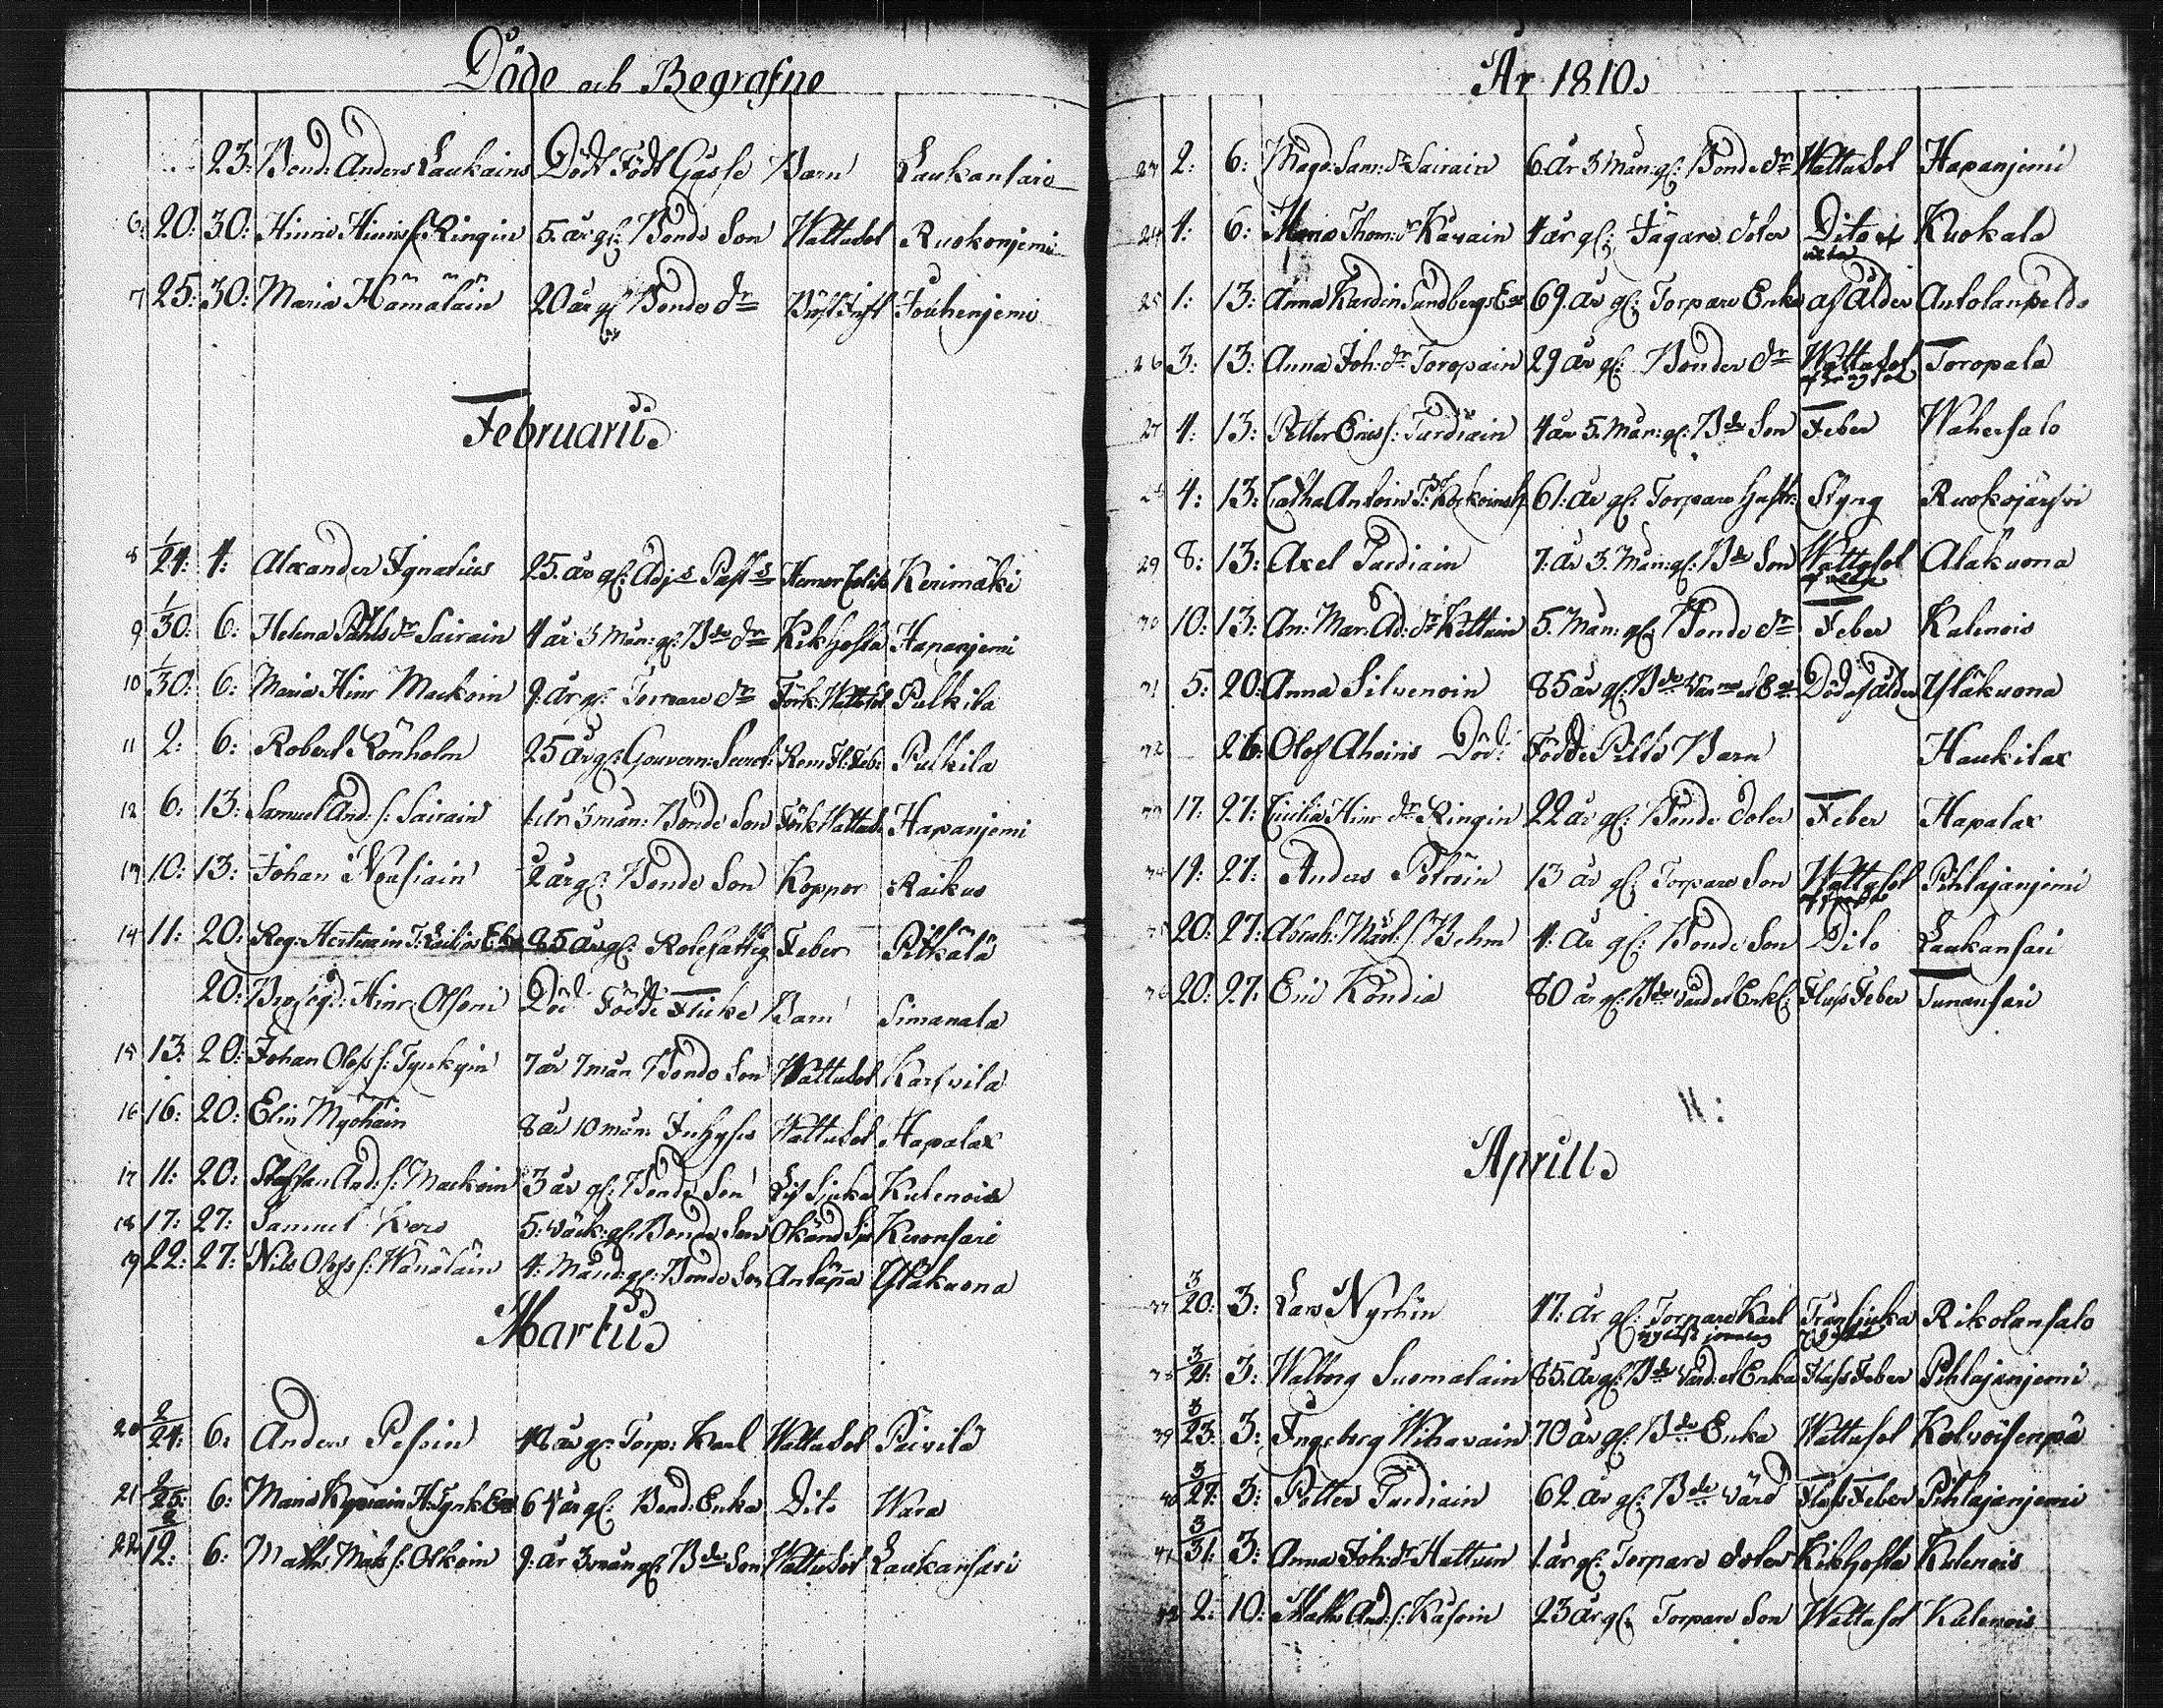 Döde och Begrafne
23: Bond: Anders Laukains Död Född Gåsse Barn Laukansari
6 20: 30: Hinric Hinrics s: Ringin 5. år gl: Bonde Son Wattusot Ruokonjemi
7 25: 30: Maria Hämäläin 20 år gl: Bonde dr Jouhenjemi
Februarii
8 1/24: 4: Alexander Ignatius 25. år gl: Adj:s Past:s Kerimäki
9 1/30: 6: Helena Påhls dr Sairain 4 år 3 mån: gl: Bde dr Kikhosta Hapanjemi
10 1/30: 6: Maria Hinr Mackoin 9. år gl: Torpare dr Tork: Wattusot Pulkila
11 2: 6: Robert Rönholm 25 år gl: Gouvern: Secret: Pulkila
12 6: 13: Samuel And: s: Sairain 1. år 3 mån: Bonde Son Tork Wattusot Hapanjemi
13 10: 13: Johan Nousiain 2 år gl: Bonde Son Koppor Raikuo
14 11: 20: Reg: Hertuain 85 år gl: Rotefattig Feber Pitkälä
20: Hinr: Olsoni Död Född Flicke Barn Simanala
15 13: 20: Johan Olofs s: Tynkyin 7 år 7 mån Bonde Son Wattusot Karfvila
16 16: 20: Elin Myöhäin 8 år 10 mån: Inhyses Wattusot Hapalax
17 11: 20: Staffan And: s: Mackoin 3 år gl: Bonde Son Kulenois
18 17: 27: Samuel Kero 5: väck: gl: Bonde Son Okänd Sju Kuonsari
19 22: 27: Nils Olofs s: Wänäläin 4: Månd: gl: Bonde Son Yläkuona
Martii
20 2/24: 6: Anders Pesoin 48 år gl: Torp: Karl Wattusot Päivilä
21 2/25: 6: Maria 64 år gl: Bond: Enka Dito Wara
22 2/12: 6: Maths Mats s: Otkoin 9. år 3 mån gl: Bde Son Wattusot Laukansari
År 1810.
23 2: 6: Magd: Sam: dr Sairain 6. År 3 Mån: gl: Bonde dr Wattusot Hapanjemi
24 4: 6: Maria Thom: dr Käräin 4 år gl: Jägare doter Dito Kuokala
25 1: 13: Anna Kardin Sundbergs 69. år gl: Torpare Enka af Ålder Antolanpeldo
26 3: 13: Anna Joh: dr Toropain 29 år gl: Bonder dr Wattusot Toropala
27 4: 13: Petter Erics s: Turdiain 4 år 5. Mån: gl: Bde Son Feber Wahersalo
28 4: 13: Catha Antoin 61: år gl: Torpare Hustr: Styng Ruokojärfvi
29 8: 13: Axel Turdiain 7: år 3. Mån: gl: Bde Son Wattusot Alakuona
30 10: 13: An: Mar: Ad: dr Kettuin 5. Mån: gl: Bonde dr Feber Kulenois
31 5: 20: Anna Silvenoin 85 år gl: Död af ålder Yläkuona
32 26: Olof Ahoins Död: Födde Barn Haukilax
33 17: 27: Cicilia Hinr dr Ringin 22 år gl: Bonde doter Feber Hapalax
34 19: 27: Anders Pöyröin 13 år gl: Torpare Son Wattusot Pihlajanjemi
35 20: 27: Abrah: Märt: s: Behm 4: År gl: Bonde Son Dito Laukansari
36 20: 27: Eric Kondia 80 år gl: Fluss Feber Tunansari
11:
Aprill
37 3/20: 3: Lars Nyrhin 47: År gl: Torpare Karl Transjuka Rikolansalo
38 3/21: 3: Walborg Suomalain 85. År gl: Enka Fluss Feber Pihlajanjemi
39 3/23: 3: Ingeborg Wiharain 70 år gl: Bde Enka Wattusot
40 3/27: 3: Petter Turdiain 62 år gl: Bde Värd Fluss Feber Pihlajanjemi
41 3/31: 3: Anna Joh: dr Hattuin 1. år gl: Torpare doter Kikhosta Kulenois
42 2: 10: Maths And: s: Käsoin 23 år gl: Torpare Son Wattusot Kulenois